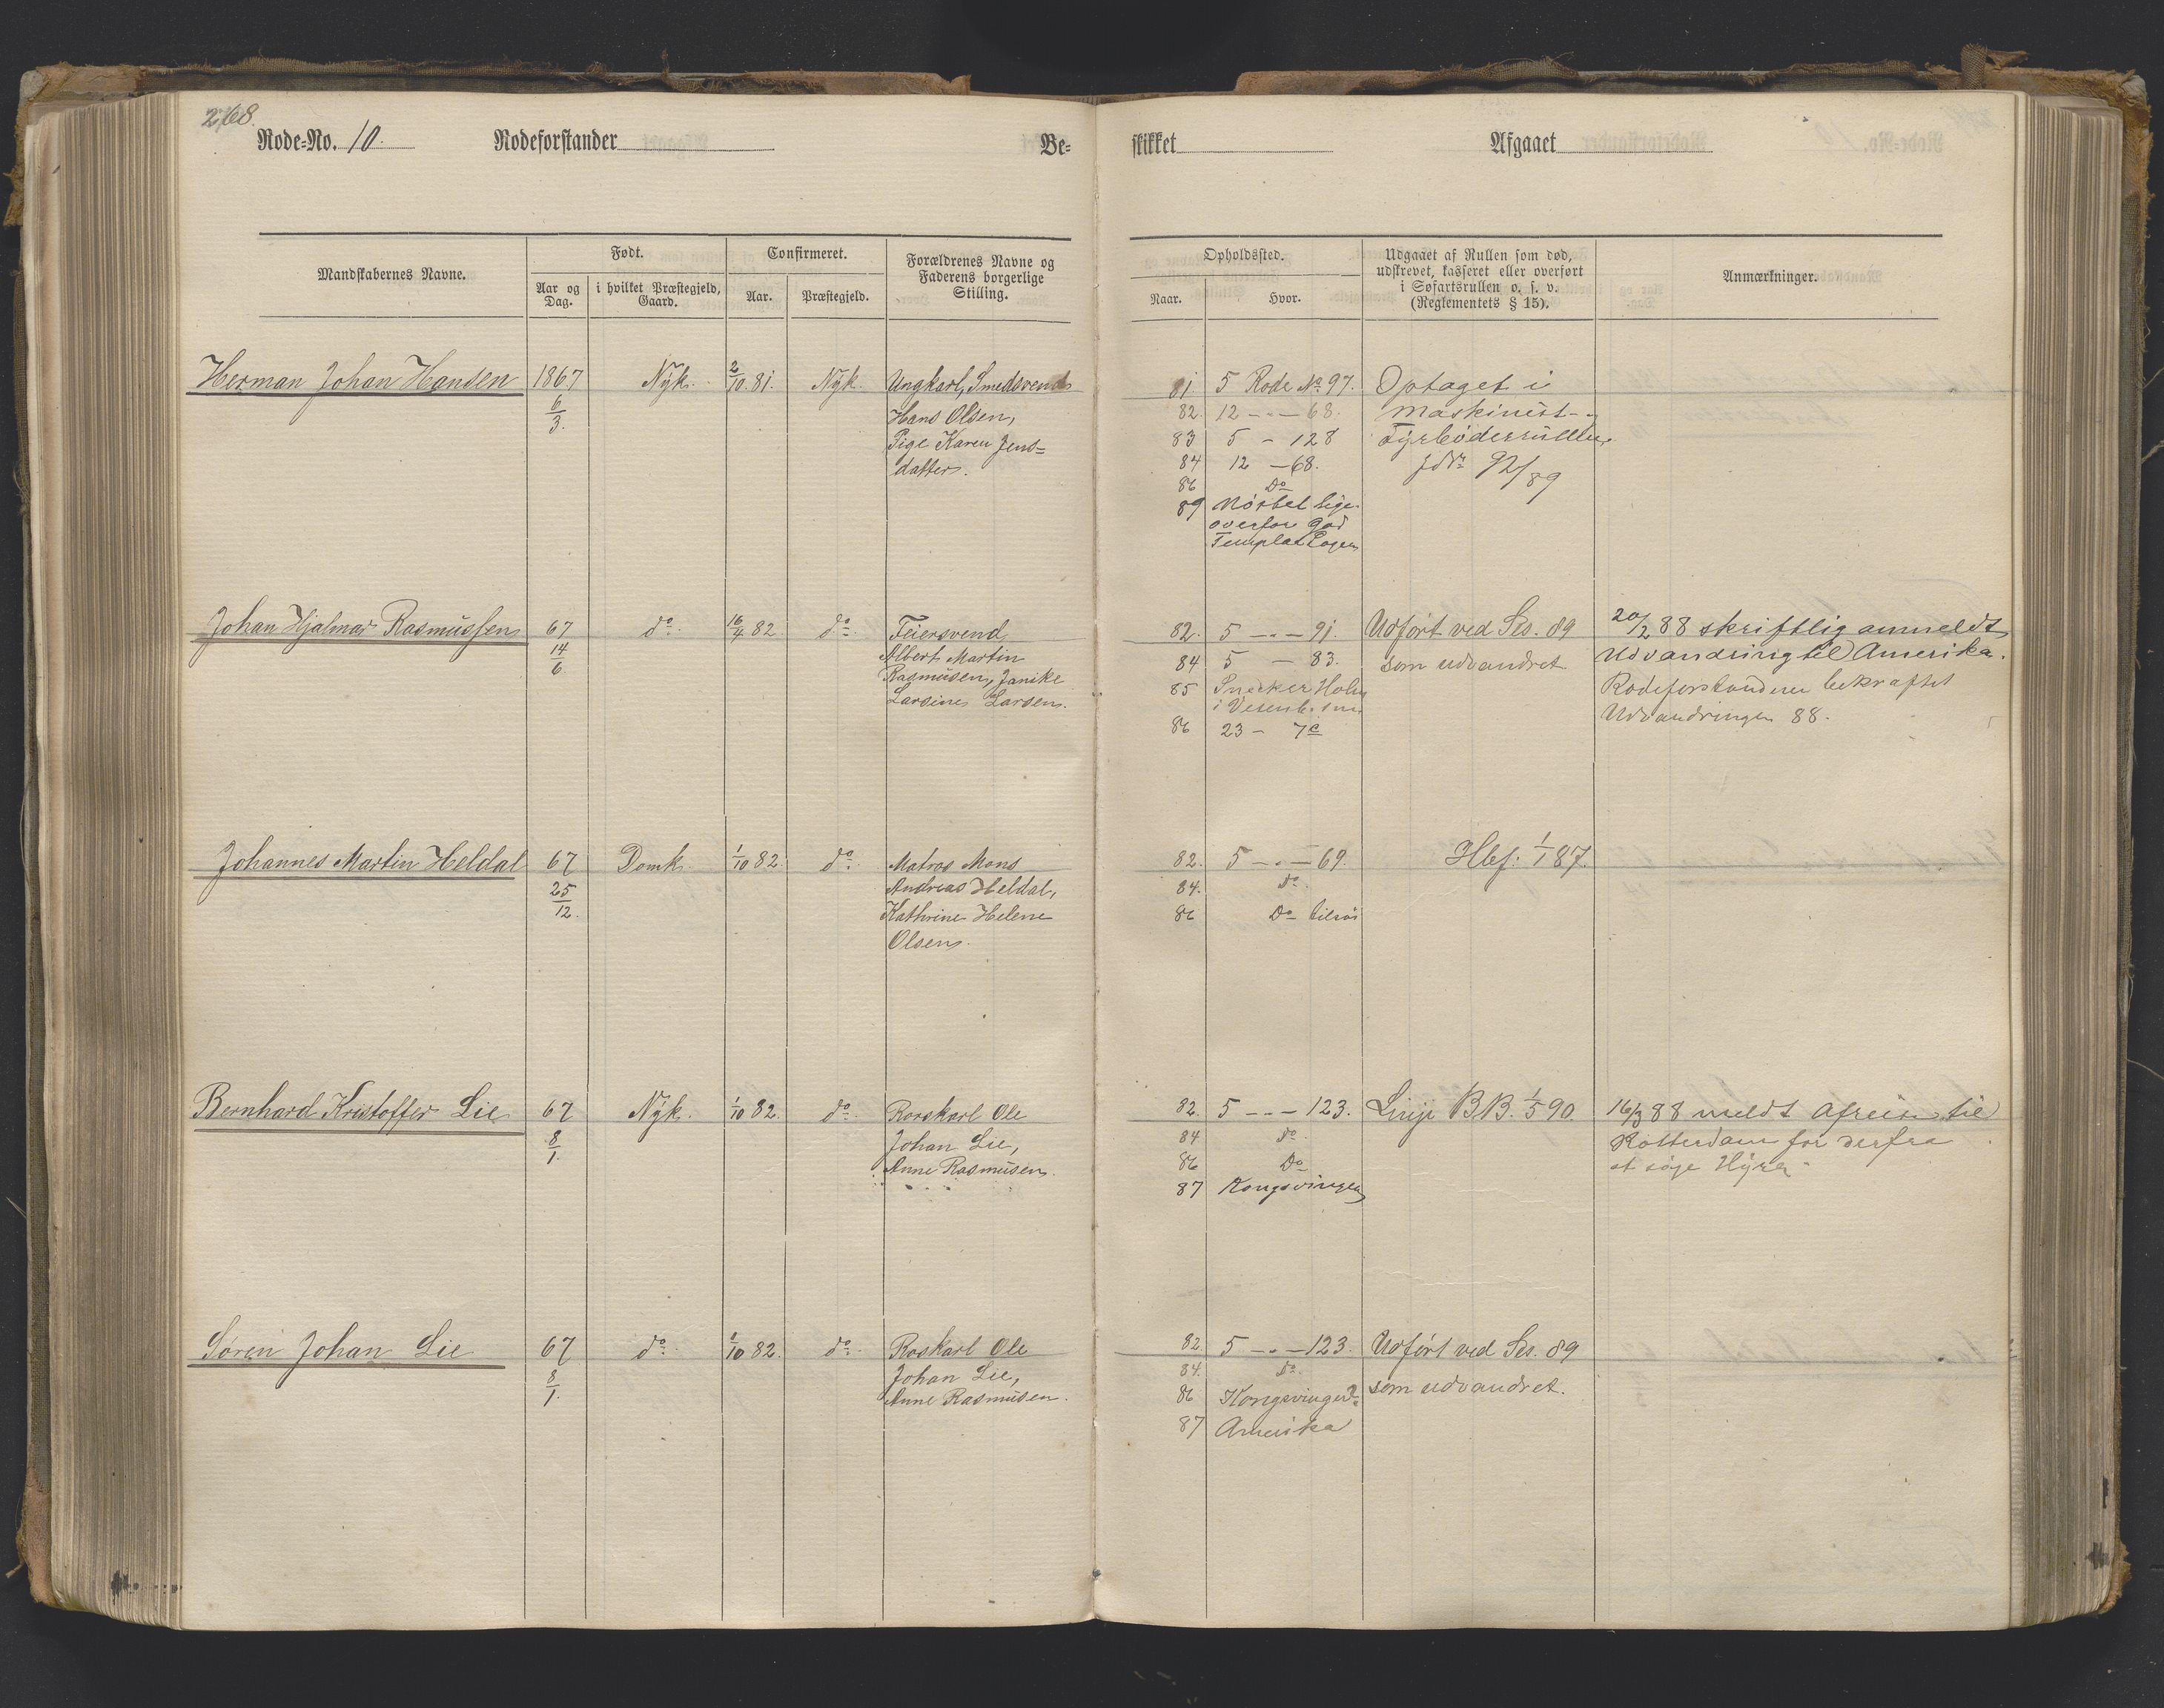 268.
Rode=No. 10. Rodeforstander Be=
skikket Afgaaet
Mandskabernes Navne.
Født.
Aar og Dag.
i hvilket Præstegjeld, Gaard.
Confirmeret.
Aar.
Præstegjeld.
Forældrenes Navne og
Faderens borgerlige
Stilling.
Opholdssted.
Naar.
Hvor.
Udgaaet af Rullen som død,
udskrevet, kasseret eller overført
i Søfartsrullen o. s. v.
(Reglementets § 15).
Anmærkninger.
Herman Johan Hansen 1867 Nyk. 2/10. 81. Nyk. Ungkarl, Smedsvend
6/3.
Hans Olsen,
Pige Karen Jens=
datter.
81 5 Rode No 97. Optaget i
82. 12 - " - 68. Maskinist-
83 5 - 128 Fyrböderrullen
84 12 - 68. 92/89
86 Do
89 lige
overfor God
Templar Logen
Johan Hjalmar Rasmussen 67 do. 16/4 82 do. Feiersvend
14/6
Albert Martin
Rasmusen, Janike
Larsine Larsen.
82. 5 - " - 91. Udført ved Ses. 89 20/2 88 skriftlig anmeldt
84 5 - 83. som udvandret Udvandring til Amerika.
85 Snecker Holm Rodeforstanderen bekræftet
Udvandringen 88.
86 23 - 7c
Johannes Martin Heldal 67 Domk. 1/10 82. do. Matros Mons
25/12.
Andreas Heldal,
Kathrine Helene
Olsen.
82. 5 - " - 69. Hlef: 1/1 87.
84. Do
86 Do tilsøs
Bernhard Kristoffer Lie 67 Nyk. 1/10 82. do. Rorskarl Ole
8/1.
Johan Lie,
Anne Rasmusen.
82. 5 - " - 123. Linje BB. 1/5 90. 16/3 88 meldt Afreise til
84 Do Rotterdam for derfra
86 Do at søge Hyre.
87 Kongsvinger
Sørin Johan Lie 67 do. 1/10 82. do. Roskarl Ole
8/1.
Johan Lie,
Anne Rasmusen.
82 5 - " - 123. Udført ved Ses. 89
84. Do.
86 Kongsvinger som udvandret.
87 Amerika